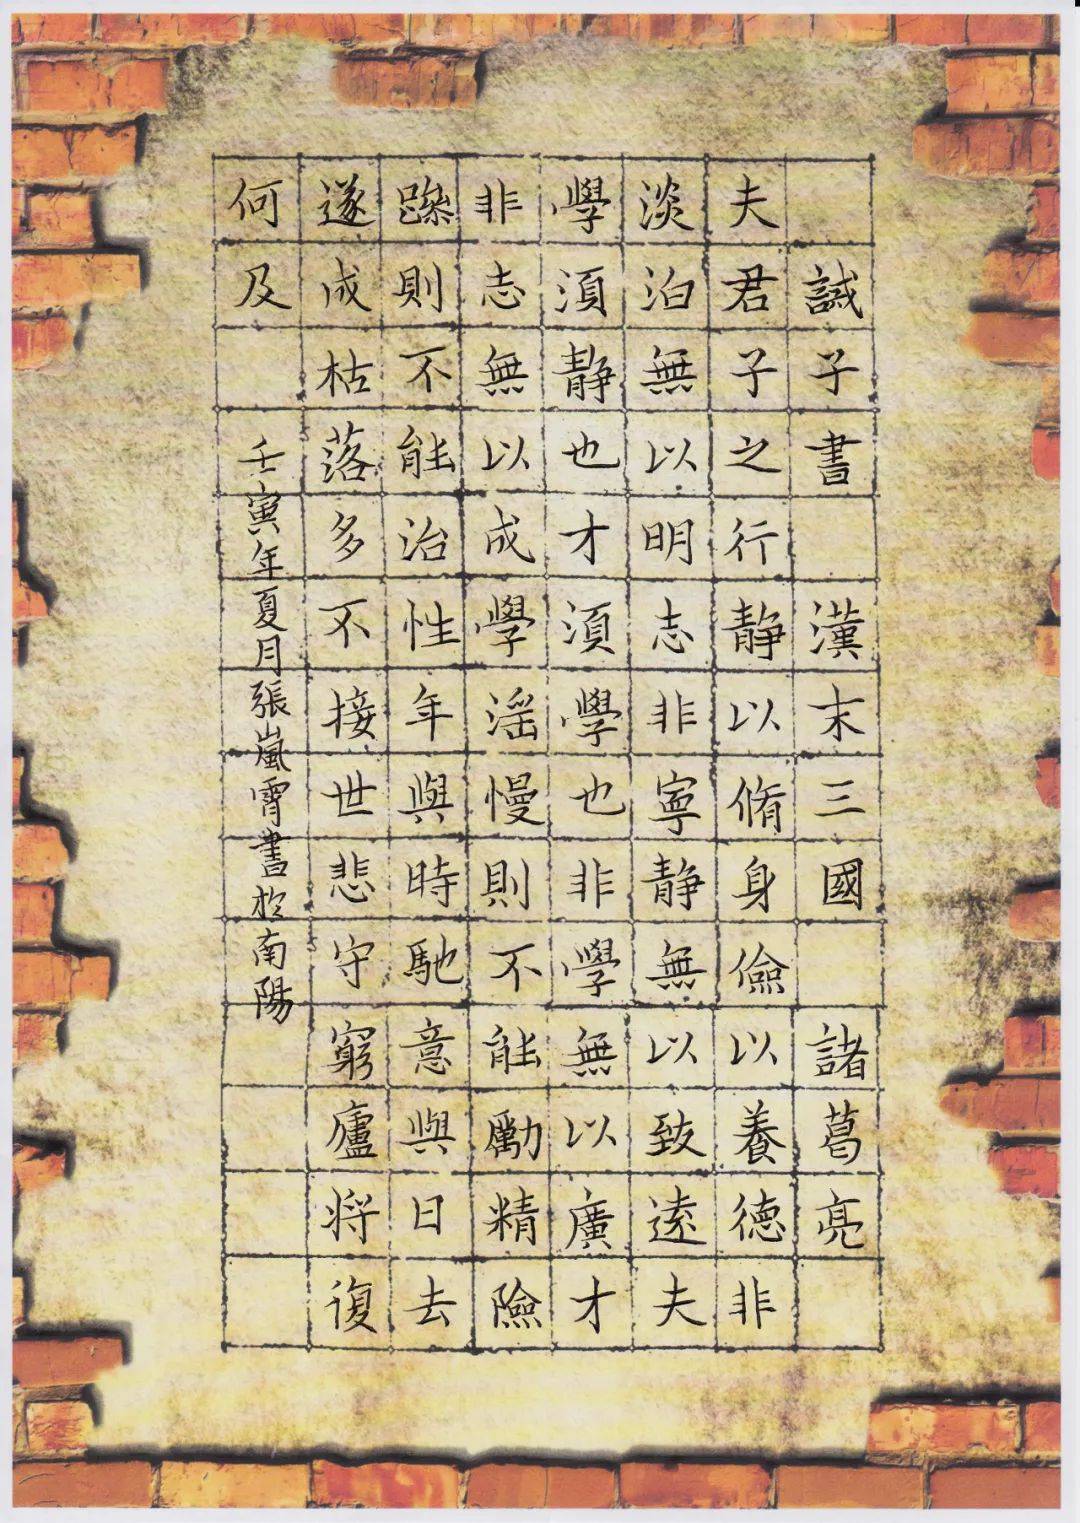 誡子書 漢末三國 諸葛亮
夫君子之行靜以脩身儉以養德非
淡泊無以明志非寧靜無以致遠夫
學須靜也才須學也非學無以廣才
非志無以成學淫慢則不能勵精險
躁則不能治性年與時馳意與日去
遂成枯落多不接世悲守窮廬將復
何及
壬寅年夏月張嵐霄書於南陽